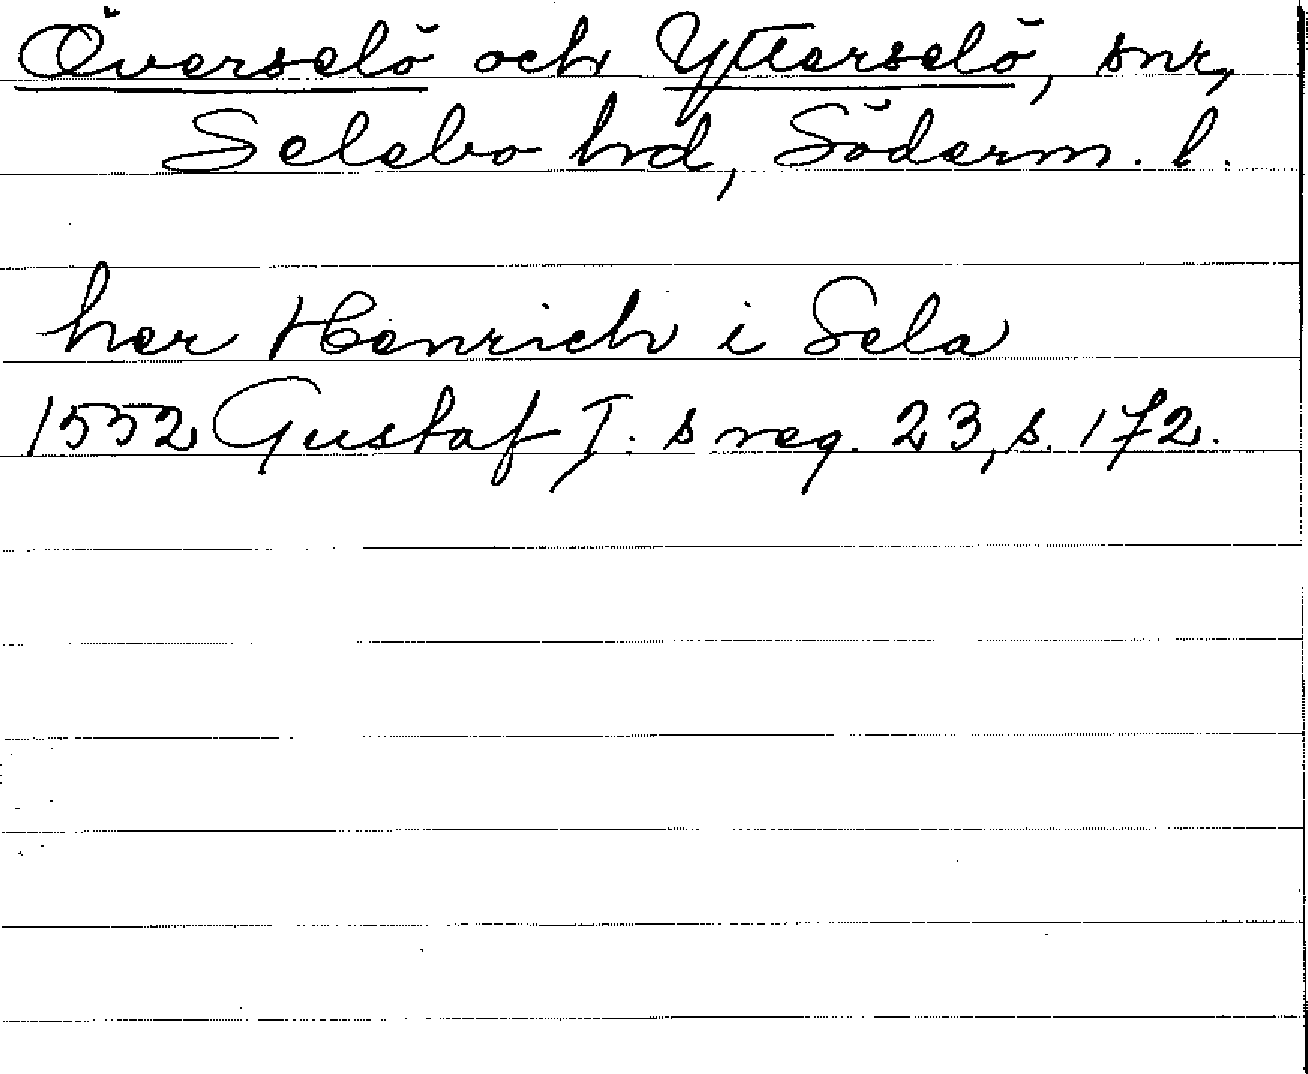 Överselö och Ytterselö, snr,
Selebo hrd, Söderm. l.
her Henrich i Sela
1552 Gustaf I: s reg. 23, s. 172.